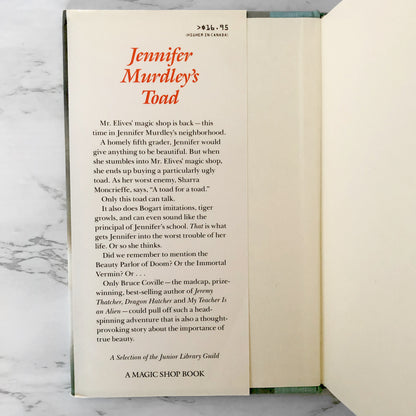 >$16.95
(HIGHER IN CANADA)
Jennifer
Murdley's
Toad
Mr. Elives' magic shop is back—this
time in Jennifer Murdley's neighborhood.
A homely fifth grader, Jennifer would
give anything to be beautiful. But when
she stumbles into Mr. Elives' magic shop,
she ends up buying a particularly ugly
toad. As her worst enemy, Sharra
Moncrieffe, says, "A toad for a toad."
Only this toad can talk.
It also does Bogart imitations, tiger
growls, and can even sound like the
principal of Jennifer's school. That is what
gets Jennifer into the worst trouble of her
life. Or so she thinks.
Did we remember to mention the
Beauty Parlor of Doom? Or the Immortal
Vermin? Or . . .
Only Bruce Coville—the madcap, prize-
winning, best-selling author of Jeremy
Thatcher, Dragon Hatcher and My Teacher Is
an Alien—could pull off such a head-
spinning adventure that is also a thought-
provoking story about the importance of
true beauty.
A Selection of the Junior Library Guild
A MAGIC SHOP BOOK